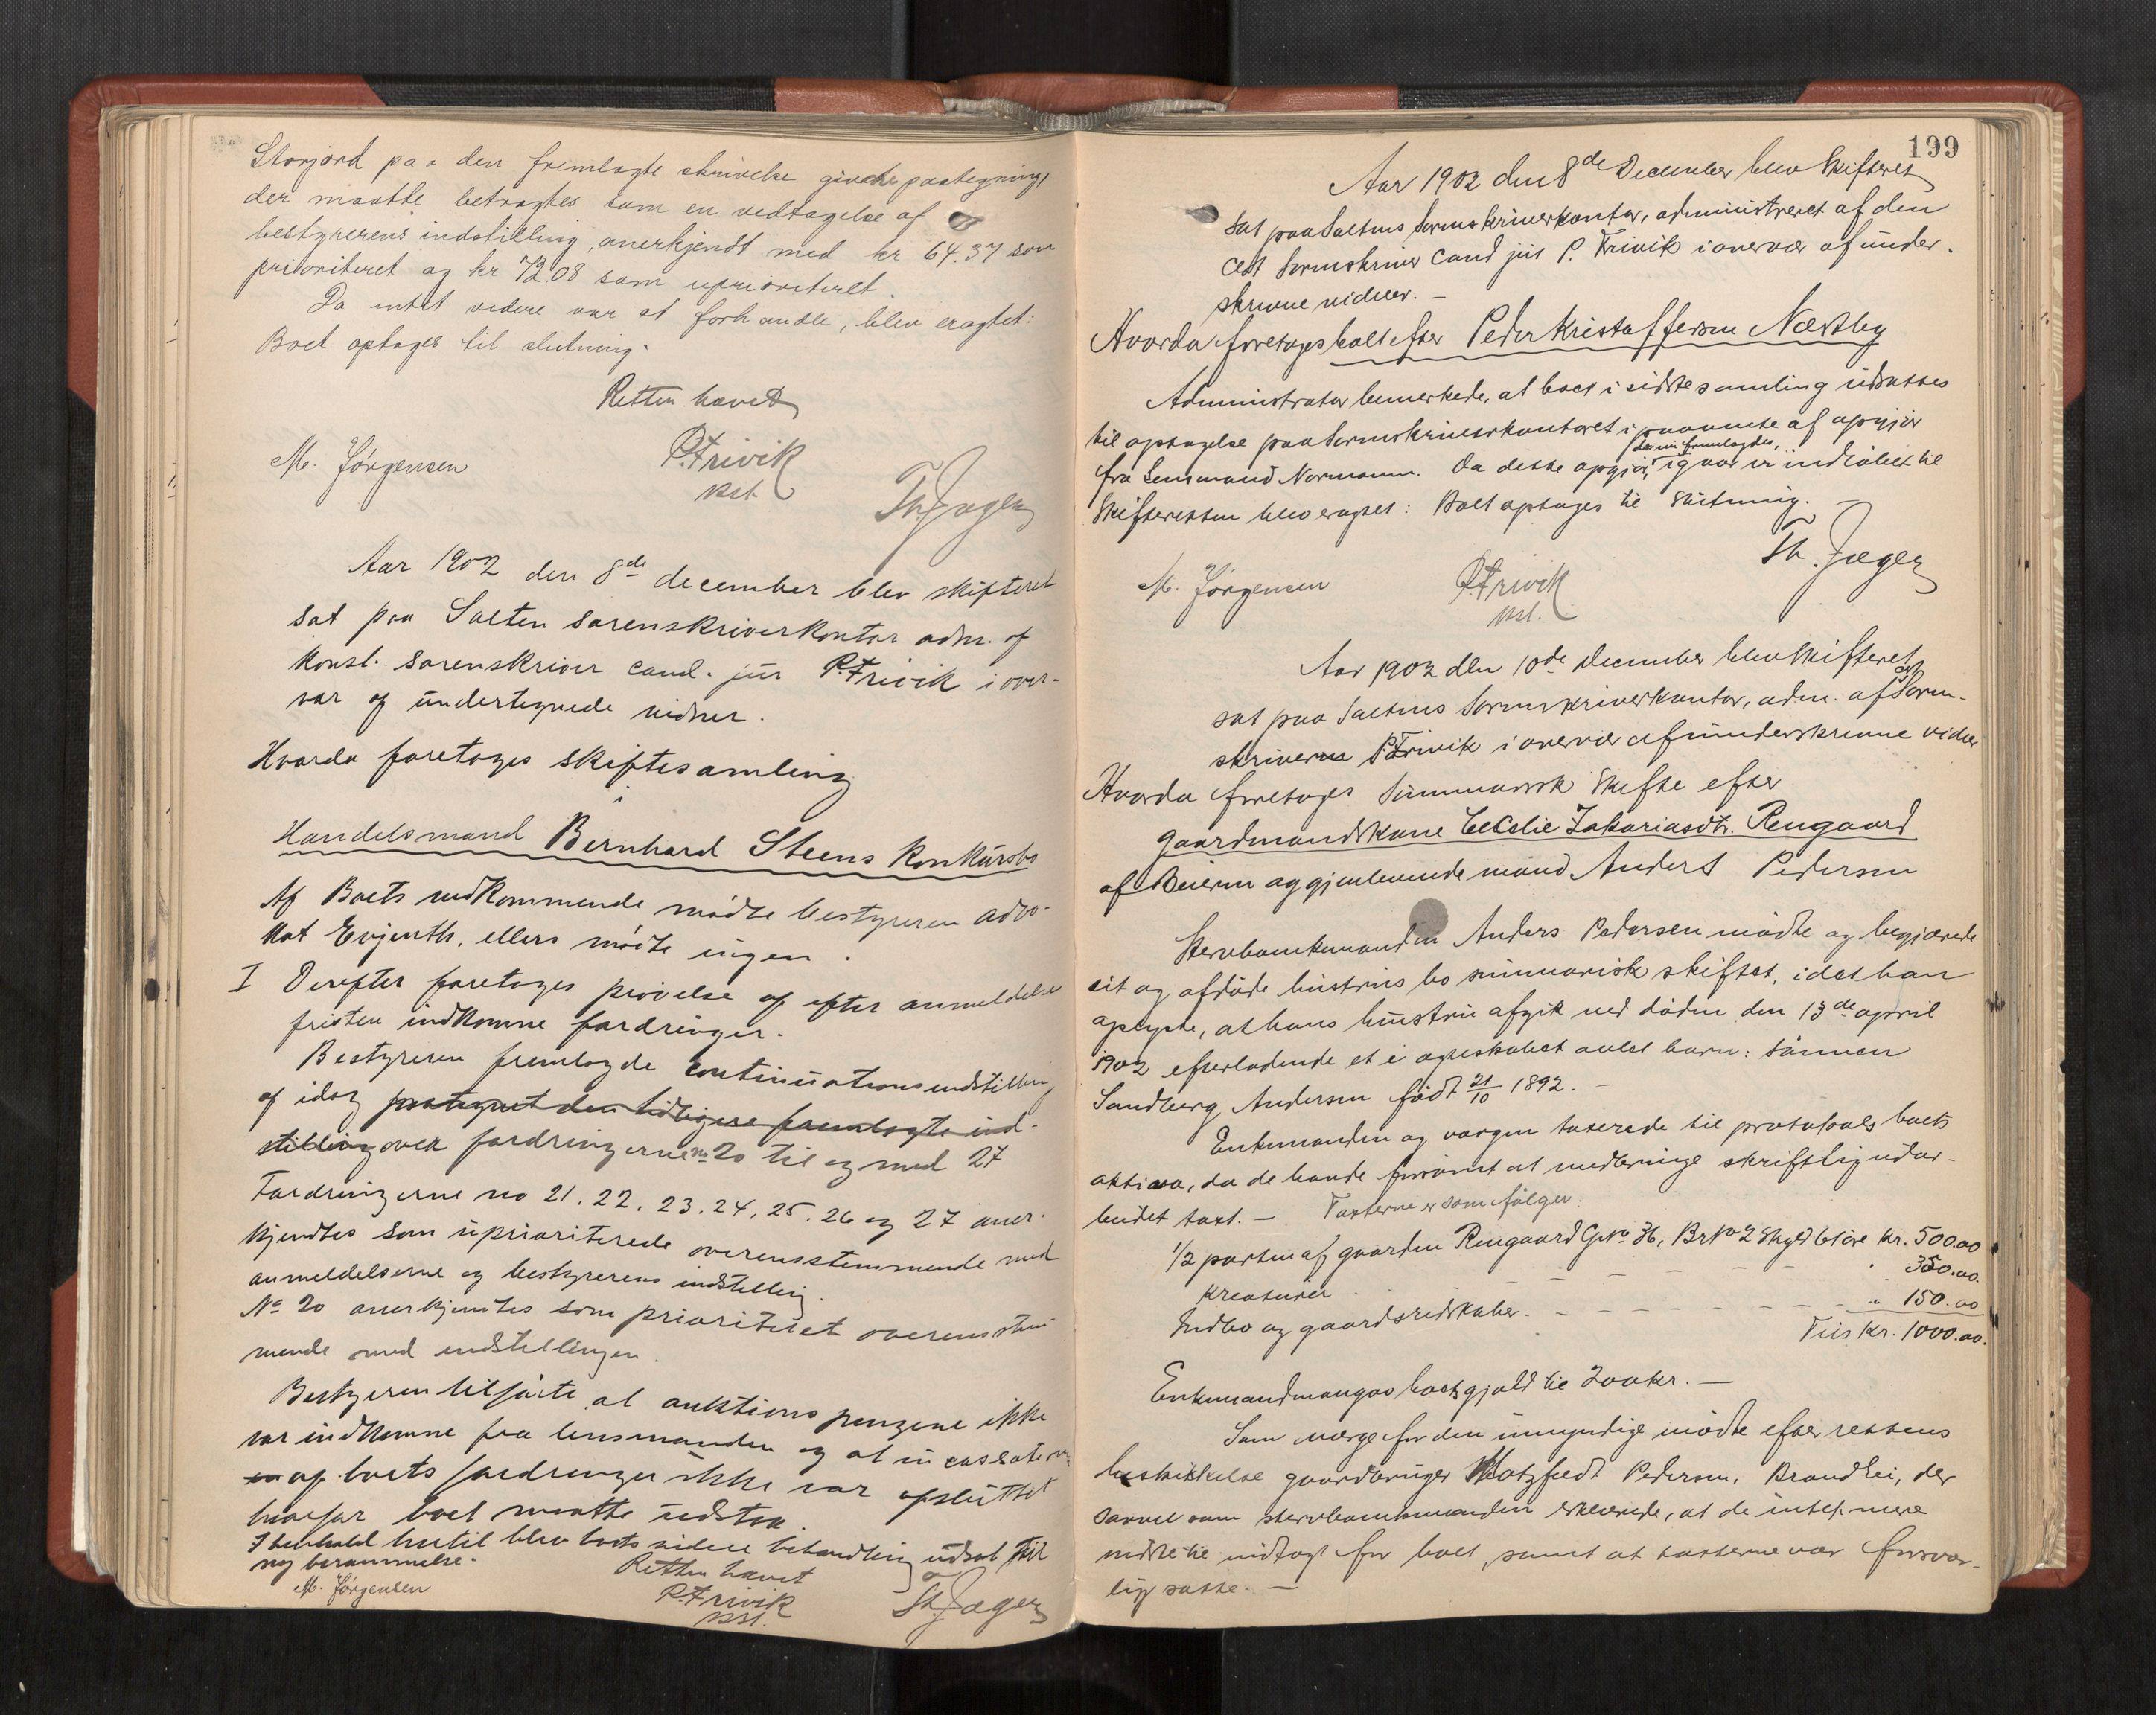 Storjord paa den fremlagte skrivelse givne paategning,
der maatte betragtes som en vedtagelse af
bestyrerens indstilling, anerkjendt med kr 64.37 som
prioriteret og kr 72.08 som uprioriteret.
Da intet videre var at forhandle, blev eragtet:
Boet optages til slutning.
Retten hævet
M. Jørgensen
P. Frivik
kst.
Th. Jæger
Aar 1902 den 8de december blev skifteret
sat paa Salten sorenskriverkontor adm. af
konst. sorenskriver cand. jur P. Frivik i over-
vær af undertegnede vidner.
Hvorda foretoges skiftesamling
i
Handelsmand Bernhard Steens konkursbo
Af Boets vedkommende mødte bestyreren advo-
kat Evjenth, ellers mødte ingen.
I Derefter foretoges prøvelse af efter anmeldelses
fristen indkomne fordringer.
Bestyreren fremlagde continuationsindstilling
af idag paategnet den tidligere fremlagte ind-
stilling over fordringerne no 20 til og med 27
Fordringerne no 21. 22. 23. 24. 25. 26 og 27 aner-
kjendtes som uprioriterede overensstemmende med
anmeldelserne og bestyrerens indstilling.
No 20 anerkjendtes som prioriteret overensstem
mende med indstillingen.
Bestyreren tilførte at auktionspengene ikke
var indkomne fra lensmanden og at incassationen
af boets fordringer ikke var afsluttet
hvorfor boet maatte udstaa.
I henhold hertil blev boets videre behandling udsat til
ny berammelse.
Retten hævet
M. Jørgensen
P. Frivik
kst.
Th. Jæger
199
Aar 1902 den 8de December blev Skifteret
sat paa Saltens Sorenskriverkontor, administreret af den
cst Sorenskriver Cand jur P. Frivik i overvær af under-
skrevne vidner. —
Hvorda foretoges boet efter Peder Kristoffersen Næstby
Administrator bemerkede, at boet i sidste samling udsattes
til optagelse paa Sorenskriverkontoret i paavente af opgjør
der nu fremlagdes,
fra Lensmand Normann. Da dette opgjør, igaar er indløbet til
Skifteretten blev eragtet: Boet optages til Slutning. —
M. Jørgensen
P. Frivik
kst.
Th. Jæger
Aar 1902 den 10de December blev Skifteret
cst
sat paa Saltens Sorenskriverkontor, adm. af Soren-
skriveren P. Frivik i overvær af underskrevne vidner
Hvorda foretoges Summarisk Skifte efter
gaardmandskone Cecelie Zakariasdtr. Rengaard
af Beieren og gjenlevende mand Anders Pedersen
Stervboenkemanden Anders Pedersen mødte og begjærede
sit og afdøde hustrus bo summarisk skiftet, idet han
oplyste, at hans hustru afgik ved døden den 13de april
1902 efterladende et i ægteskabet avlet barn: sønnen
Sandberg Andersen født 21/10 1892. —
Enkemanden og værgen taxerede til protokols boets
aktiva, da de havde forsømt at medbringe skriftlig udar-
beidet taxt. — Taxterne er som følger:
1/2 parten af gaarden Rengaard Gno 36, Brno 2 Skyld 61 øre kr. 500.00
Kreaturer — — — — " 350.00.
Indbo og gaardsredskaber. — — — — — " 150.00
Tils Kr. 1000.00.
Enkemanden angav boets gjæld til 200 kr. —
Som værge for den umyndige mødte efter rettens
beskikkelse gaardbruger Hatzfeldt Pedersen, Brandli, der
saavel som stervboenkemanden erklærede, at de intet mere
vidste til indtægt for boet, samt at taxterne var forsvar-
lig satte. —